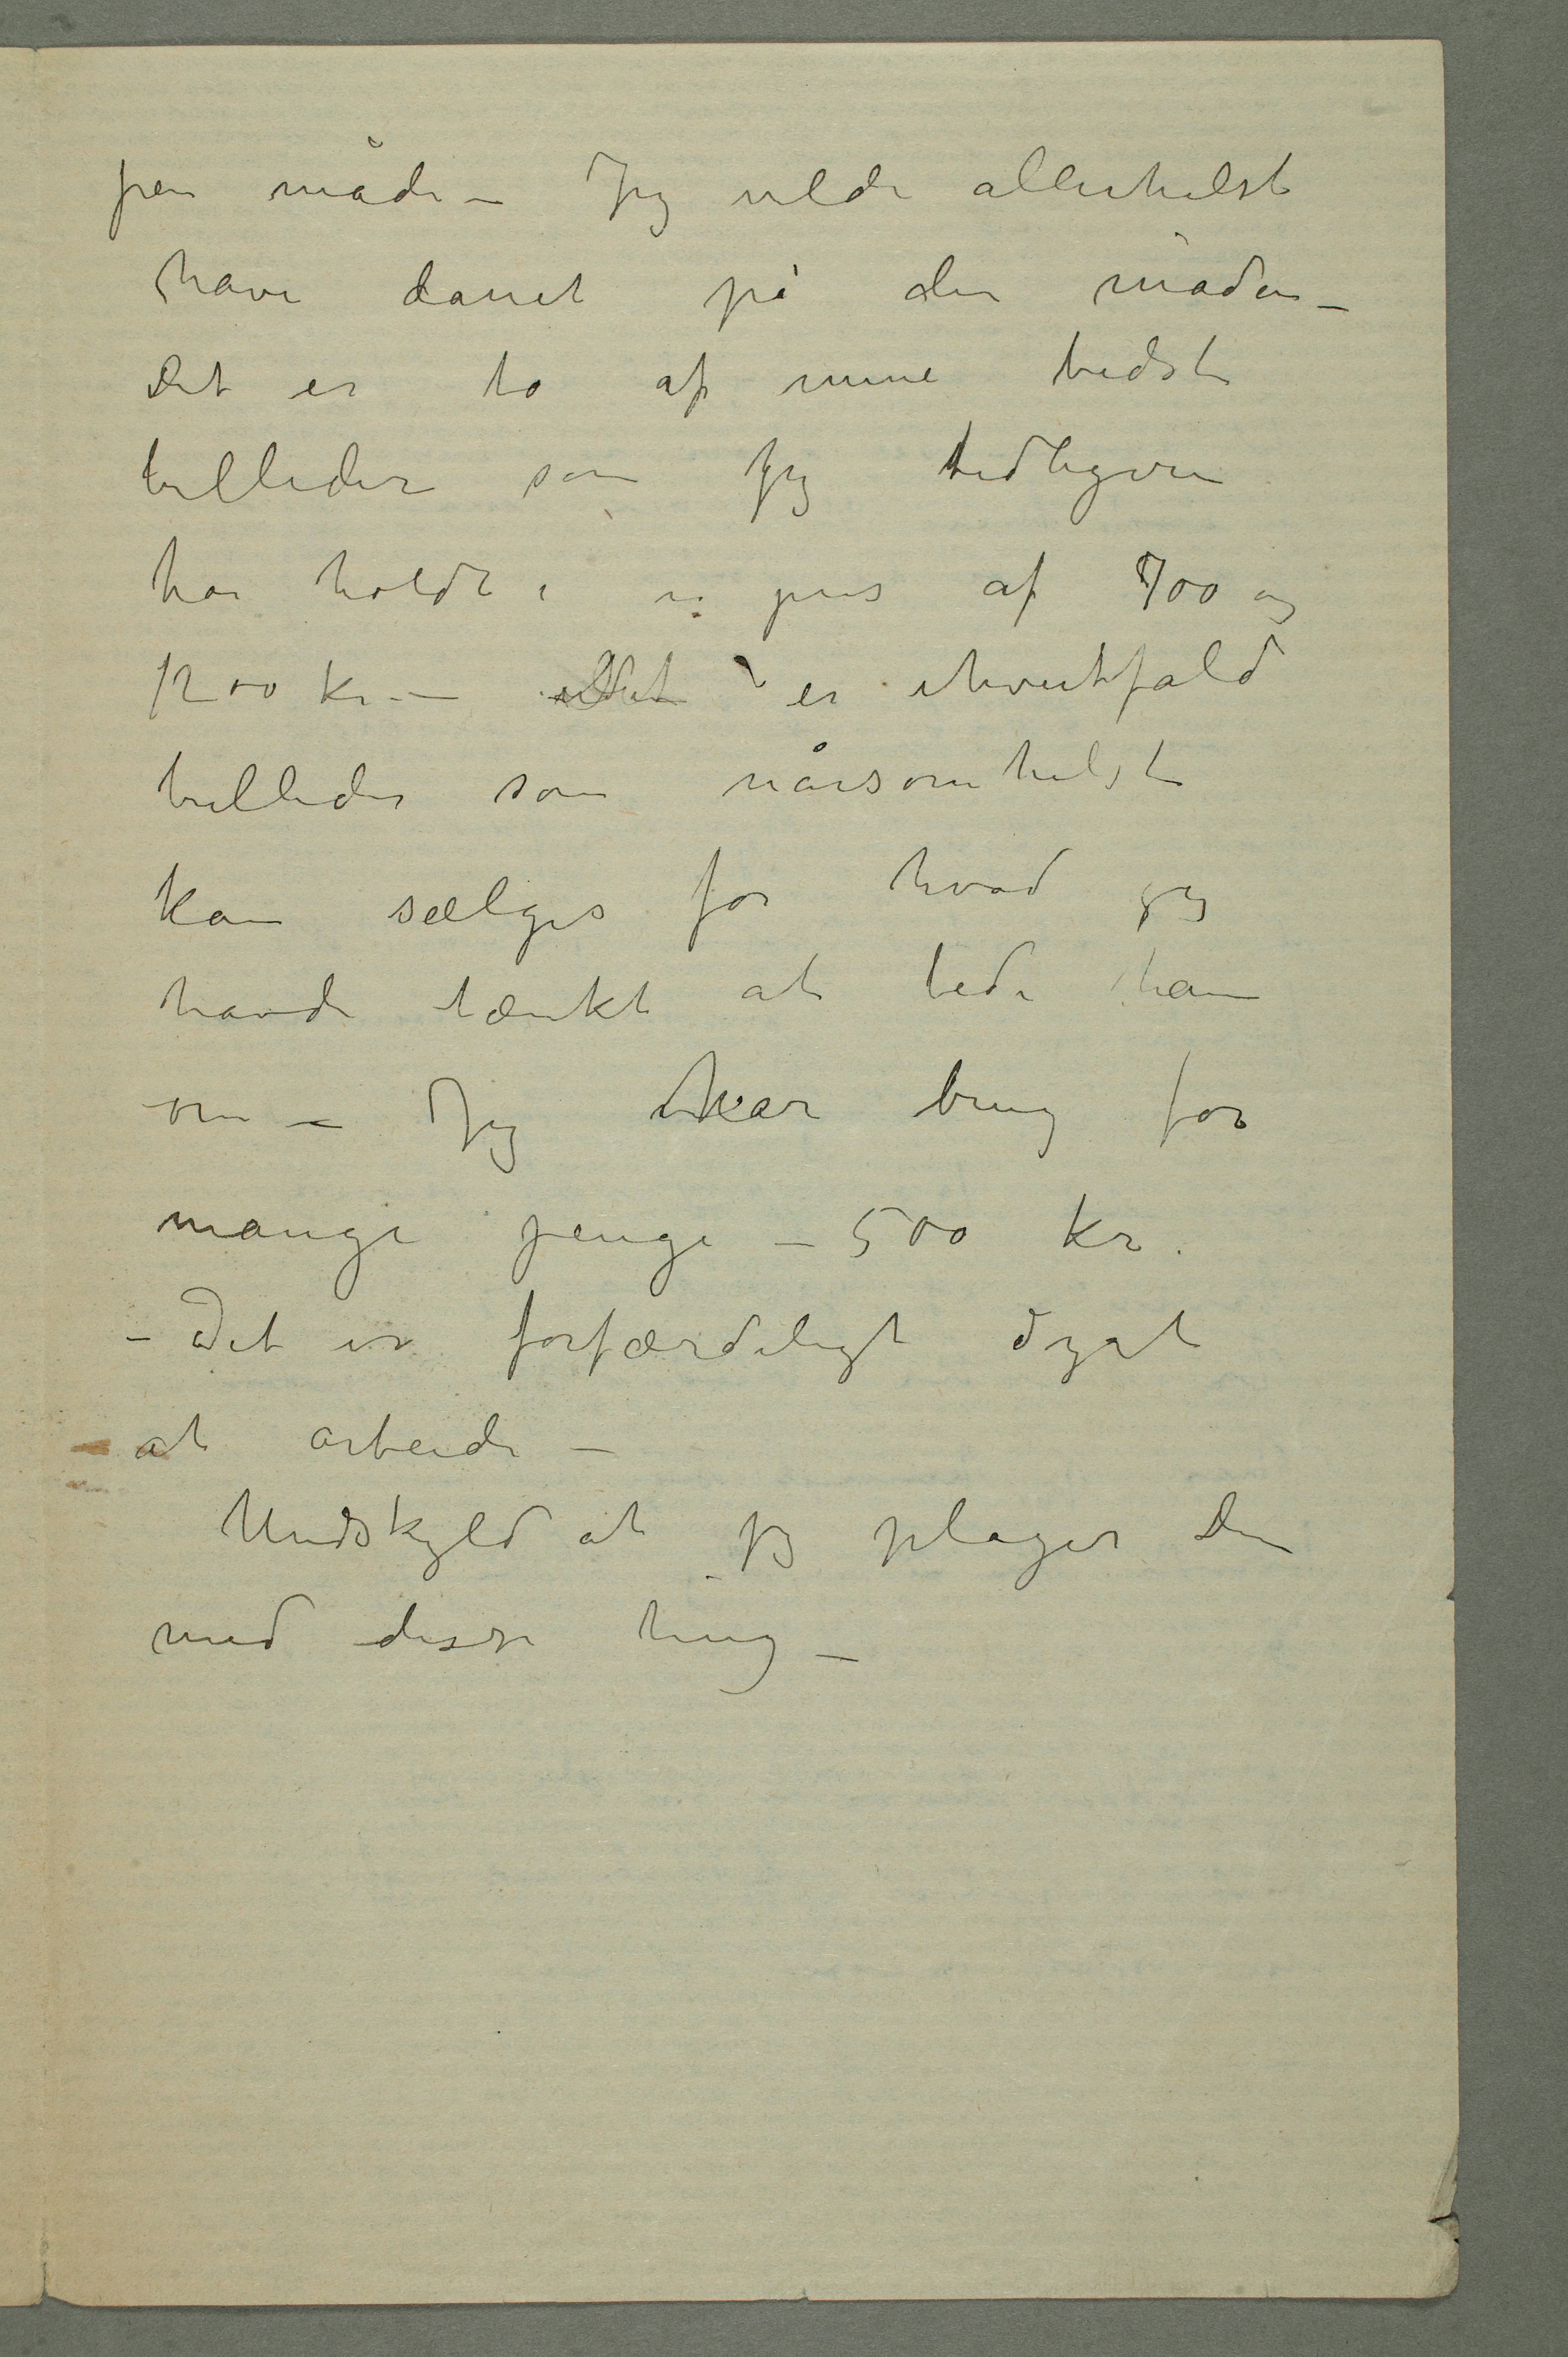 pen måde – Jeg vilde allerhelst
have dannet på den måden –
Det er to af mine bedste
billeder som jeg tidligere
har holdt i en pris af 700 og
1200 kr. – det er ihvertfald
billeder som nårsomhelst
kan sælges for hvad jeg
havde tænkt at bede ham
om – Jeg har brug for
mange penge – 500 kr.
– Det er forfærdeligt dyrt
at arbeide –
Undskyld at jeg plager Dem
med disse ting –